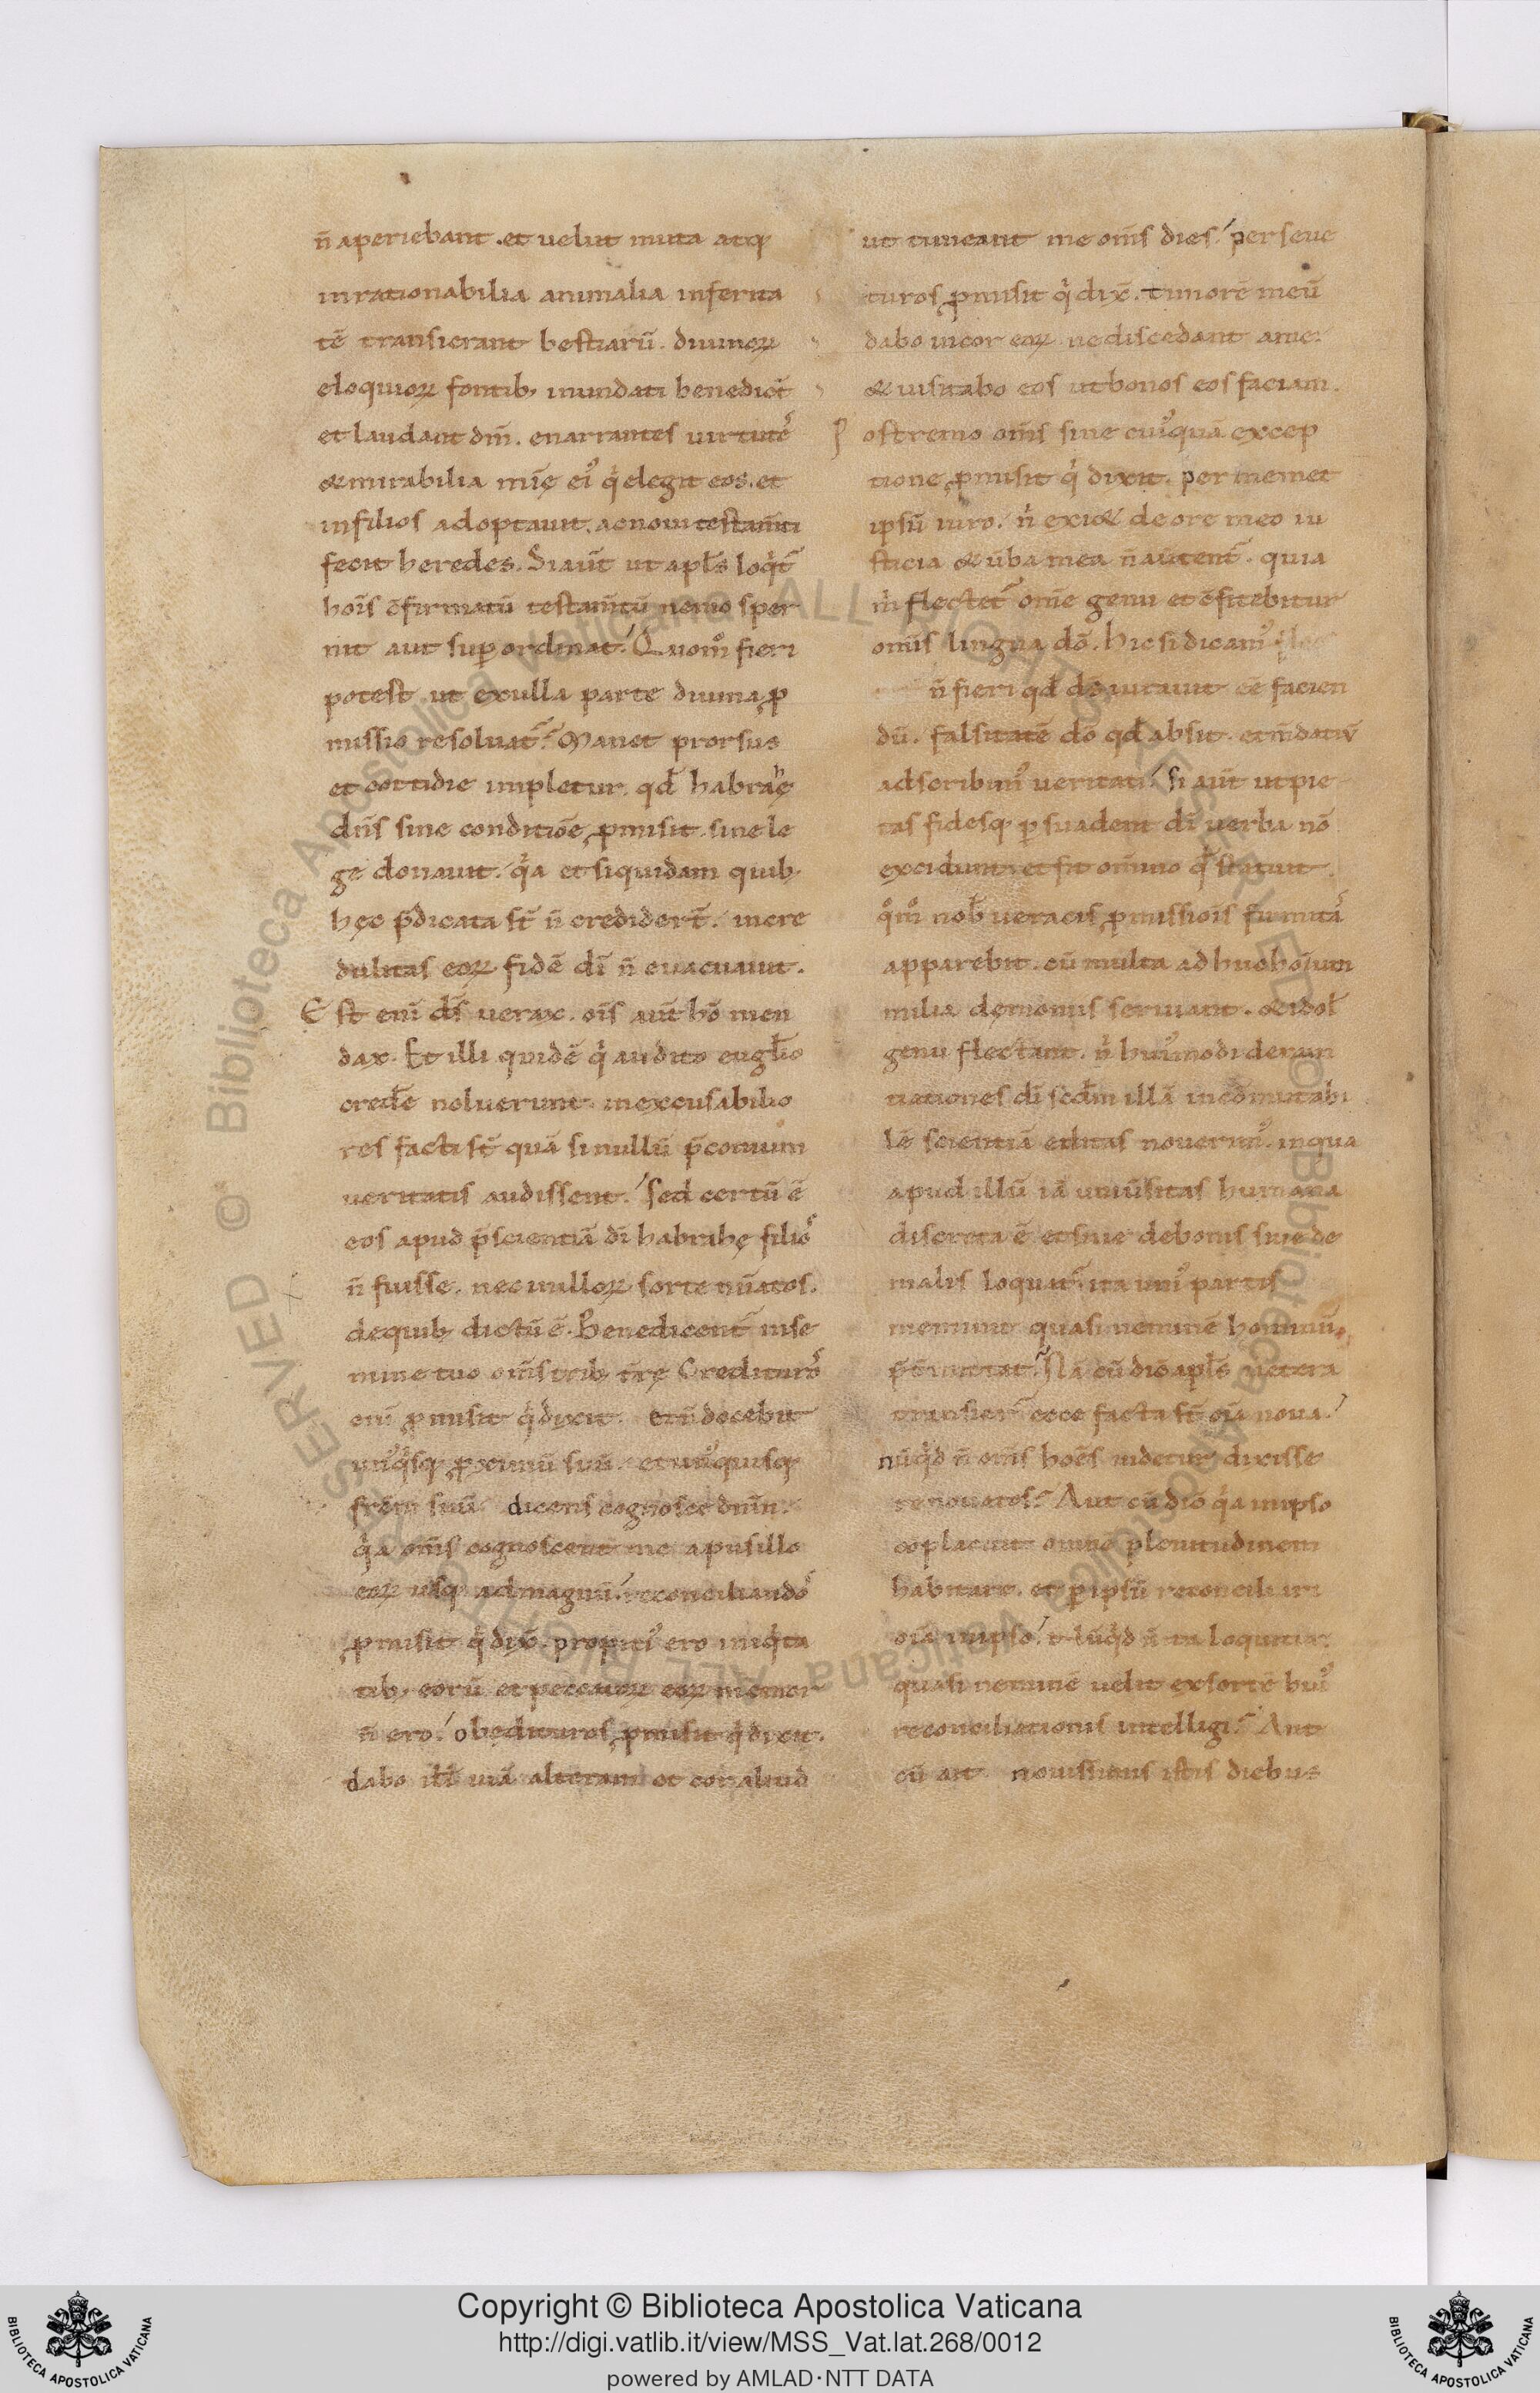 n̄ aperiebant. et uelut muta atq;
inrationabilia animalia inferita
tē transierant bestiarū. diuinoꝝ
eloquioꝝ fontib; mundati benedicūt
et laudant dm̄. enarrantes uirtutes
& mirabilia mīę ei᷒ qͥ elegit eos. et
in filios adoptauit. ac noui testam̄ti
fecit heredes. Si aūt ut apl̄s loqͥt᷑
hoīs c̄firmatū testam̄tū nemo sper
nit aut suꝑordinat. Quom̊ fieri
potest ut ex ulla parte diuina ꝓ
missio resoluat᷑? Manet prorsus
et cottidie impletur. qd̄ habrahę
dn̄s sine conditiōe ꝓmisit. sine le
ge donauit. qͥa et si quidam quib;
hęc p̄dicata st̄ n̄ credider̄t. incre
dulitas eoꝝ fidē dī n̄ euacuauit.
Est eni ds̄ uerax. oīs aūt hō men
dax. Et illi quidē qͥ audito eugl̄io
cred̄e noluerunt inexcusabilio
res facti st̄ quā si nullū p̄conium
ueritatis audissent. Sed certū ē
eos apud p̄scientiā dī habrahę filios
n̄ fuisse. nec in illoꝝ sorte nūatos.
de quib; dictū ē. Benedicent᷑ in se
mine tuo om̄s trib; t̄rę Credituros
eni ꝓmisit qͥ dixit. et n̄ docebit
un᷒qͥsq; ꝓximū suū. et un᷒quisq;
frēm suū dicens cognosce dnm̄.
qͥa om̄s cognoscent me a pusillo
eoꝝ usq; ad magnū. reconciliandos
ꝓmisit qͥ dix̄. propiti᷒ ero iniqͥta
tib; eorū et peccatoꝝ eoꝝ memor
n̄ ero. obędituros ꝓmisit qͥ dixit.
dabo ill̄ uiā alteram et cor aliud
ut timeant me om̄s dies. perseue
turos ꝓmisit qͥ dix̄. timorē meū
dabo in cor eoꝝ ne discedant a me.
& uisitabo eos ut bonos eos faciam.
Postremo om̄s sine cui᷒quā excep
tione ꝓmisit qͥ dixit. per memet
ipsū iuro. n̄ exi& de ore meo iu
sticia & ūba mea n̄ aūtent᷑. quia
m̍ flectet᷑ om̄e genu et c̄fitebitur
omīs lingua dō. Hic si dicam᷒
n̄ fieri qd̄ ds̄ iurauit ēē facien
dū. falsitatē dō qd̄ absit.
adscribim᷒ ueritati. si aūt ut pie
tas fidesq; ꝑsuadent dī uerba nō
excidunt et fit om̄ino qd̄ statuit.
qͦm̊ nob̄ ueracis ꝓmissiōis firmitas
apparebit. cū multa adhuc hoīum
milia dęmoniis seruiant. & idol̄
genu flectant. n̄ hui᷒modi denun
tiationes dī scd̄m illā incōmutabi
lē scientiā editas nouerim᷒. in qua
apud illū iā uniūsitas humana
discreta ē et siue de bonis siue de
malis loquat᷑ ita uni᷒ partis
meminit quasi neminē hominū
p̄t̄mittat. Nā cū dic̄ apl̄s uetera
transier̄ ecce facta st̄ oīa noua.
nūqͥd n̄ om̄s hoēs uidetur dixisse
renouatos? Aut cū dic̄ qͥa in ipso
coplacuit omnē plenitudinem
habitare. et ꝑ ipsū reconciliari
oīa in ipso. nūqͥd n̄ ita loquitur
quasi neminē uelit exsortē hui᷒
reconciliationis intelligi? Aut
cū ait nouissimis istis diebus
Copyright © Biblioteca Apostolica Vaticana
http://digi.vatlib.it/view/MSS_Vat.lat.268/0012
powered by AMLAD·NTT DATA